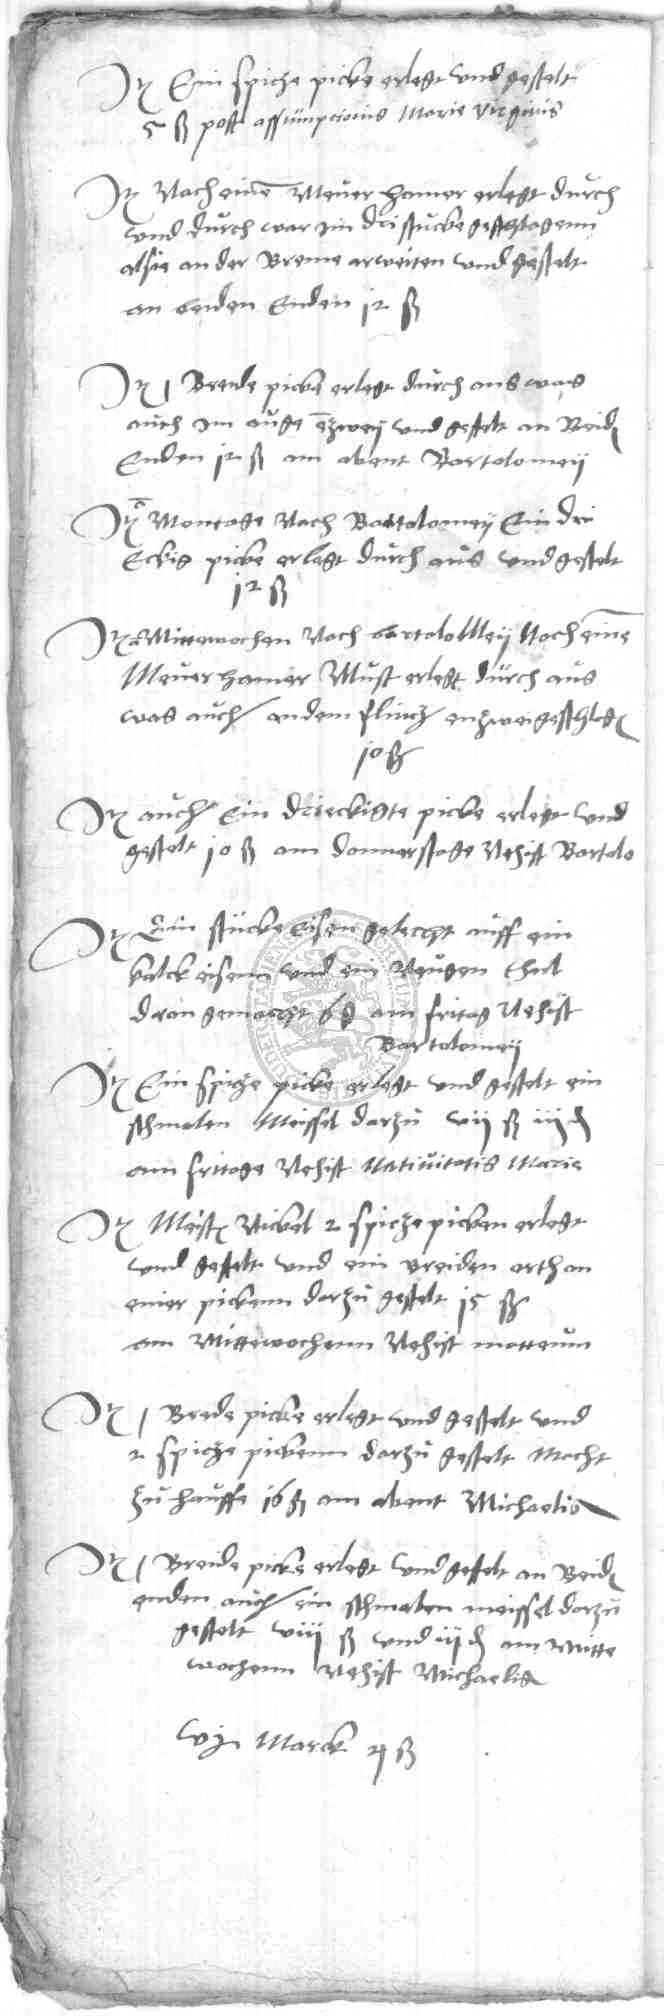 It Ein spicze picke erlegt und gestelt
5 ß post assumpcionis Marie virginis
It Nach einē Meuer hamer erlegt durch
und durch war im dri stucke geschlagenn
alsie an der Breme arweiten und gestelt
an beiden Enden 12 ß
It 1 Breide picke erlegt durch aus was
auch im auge ēzweij und gestelt an Beidē
Enden 12 ß am abent Bartolomeij
It Montage Nach Bartolomeij Ein dri
Eckig picke erlegt durch aus und gestelt
12 ß
It Mittewochen Nach bartolomeij Noch einē
Meuer hamer Must erlegt durch aus
was auch an dem enzwei geschlagē
10 ß
It auch Ein drieckigte picke erlegt und
gestelt 10 ß am donnerstage Nehist Bartolo
It Ein stucke Eisen gelecht auff ein
kalck eisenn und ein Neugen
daran gemacht 6 ß am fritag Nehist
Bartolomeij
It Ein spicze picke erlegt und gestelt ein
schmalen Meissel darzu vij ß iij d
am frittage Nehist Nativitatis Marie
It Meistē Nickel 2 spicze picken erlegt
und gestelt und ein breiden orth an
einer pickenn darzu gestelt 15 ß
am Mittewochenn Nehist matteum
It 1 Breide picke erlegt und gestelt und
2 spicze pickenn darzu gestelt Macht
zu hauffe 16 ß am abent Michaelis
It 1 Breide picke erlegt und gestelt an Beidē
enden auch ein schmalen meissel darzu
gestelt viij ß und iij d am Mitte
wochenn Nehist Michaelis
vj Marck 4 ß